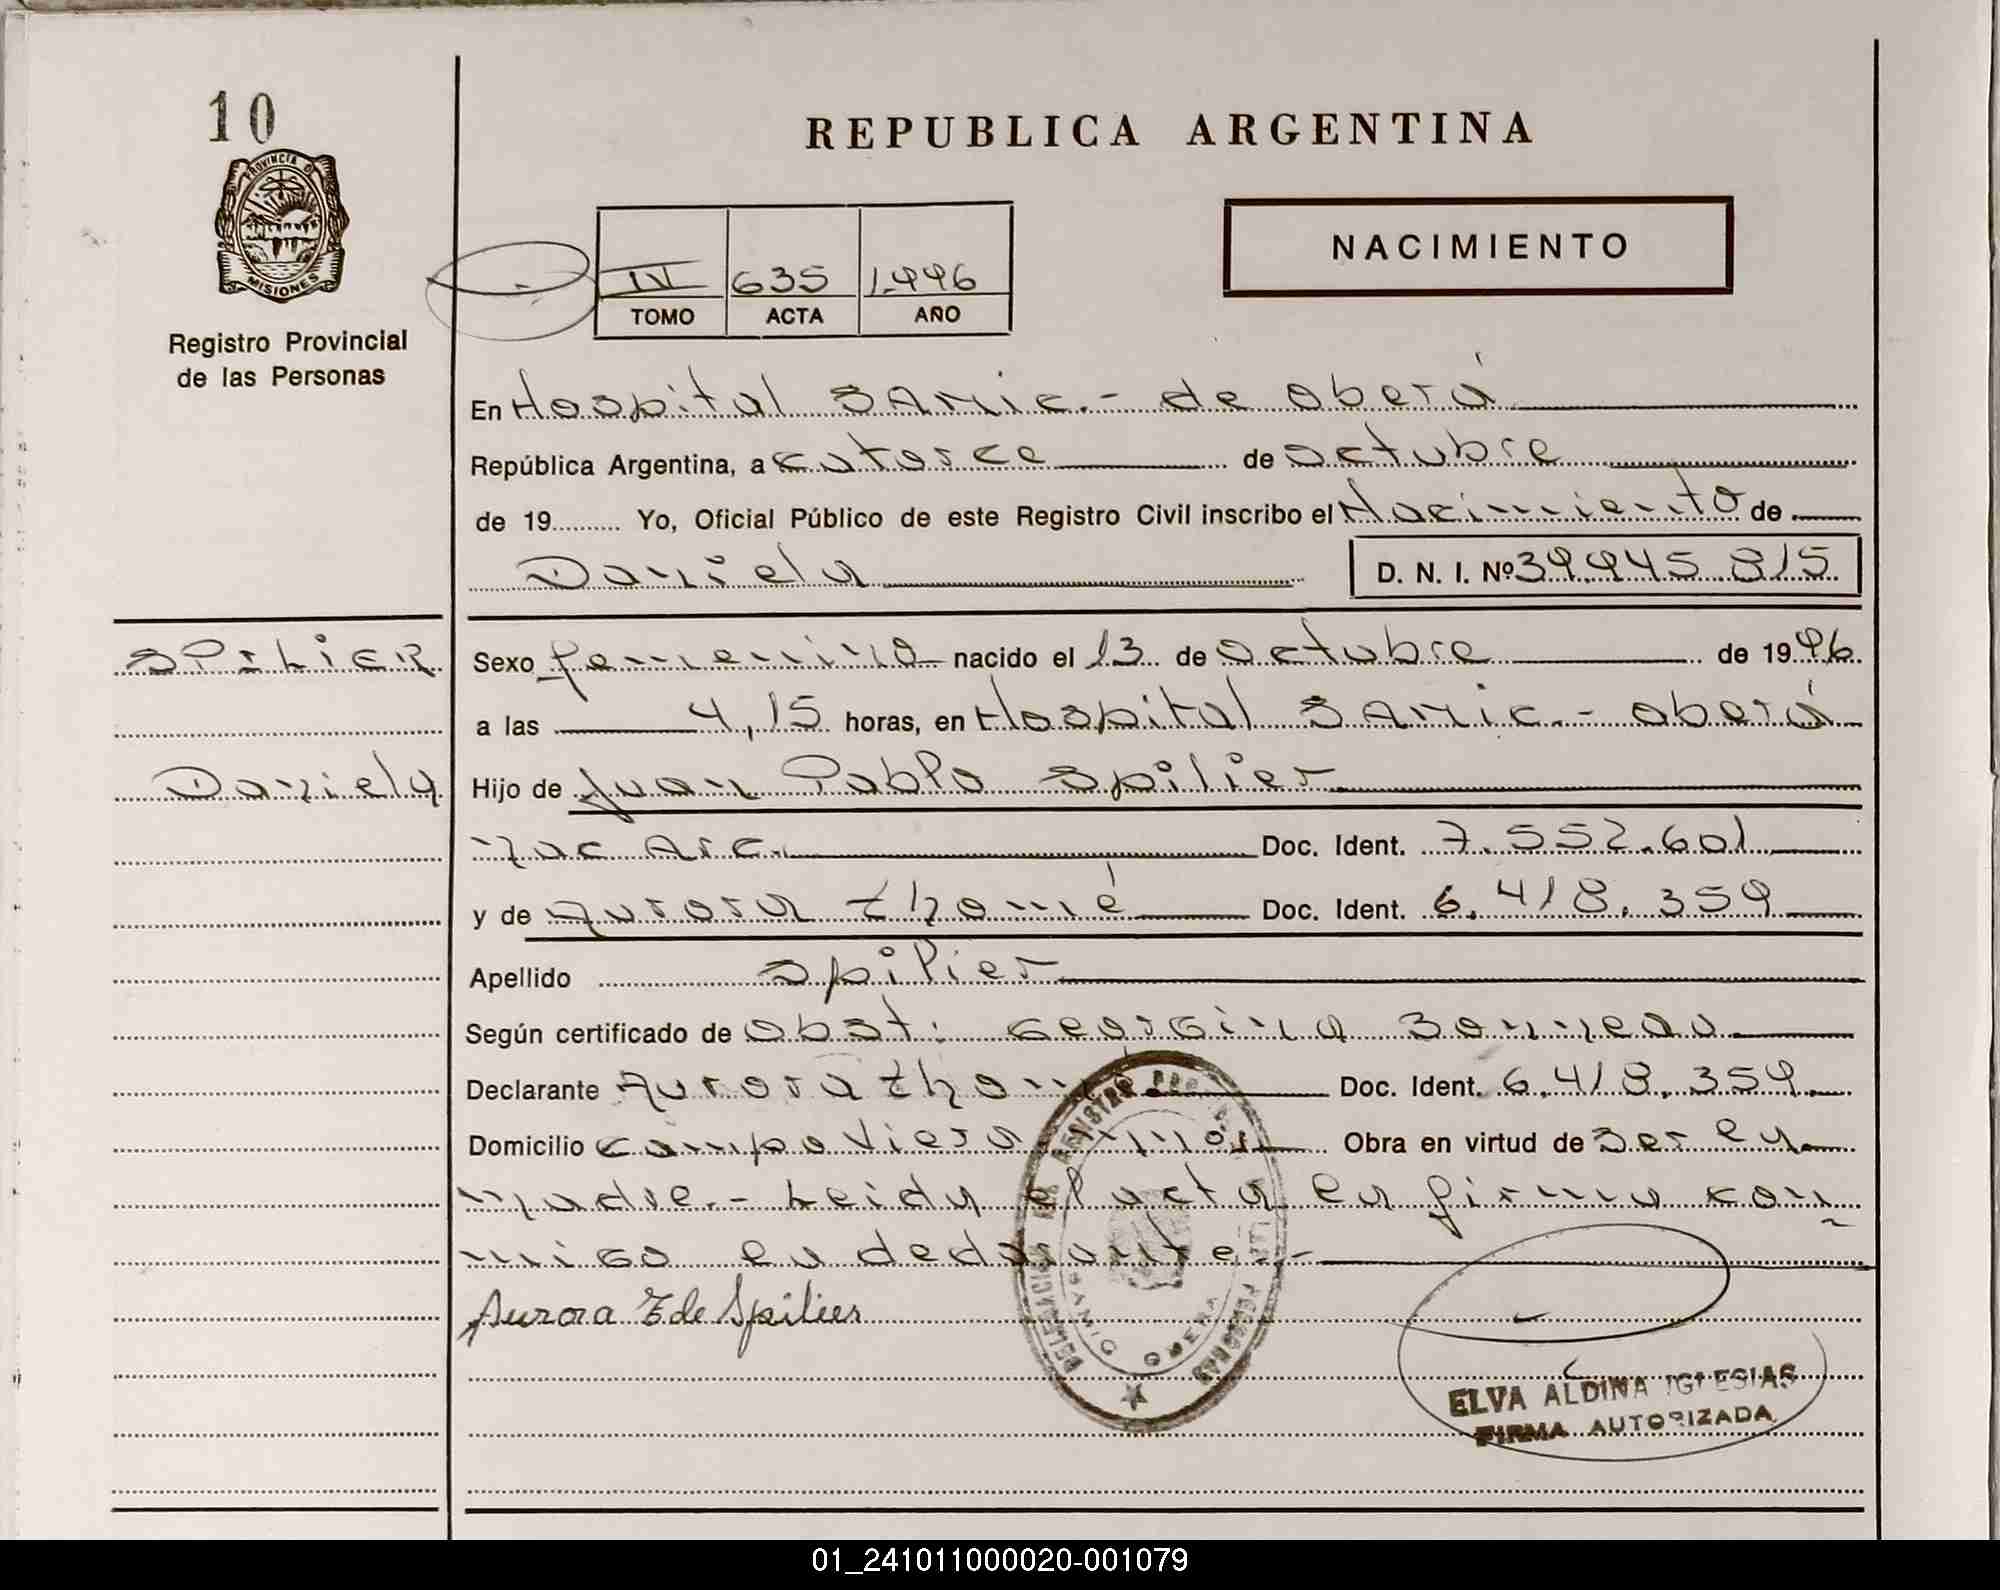 10
PROVINCIA D
MISIONES
Registro Provincial
de las Personas
REPUBLICA ARGENTINA
NACIMIENTO
IV 635 1.996
TOMO ACTA AÑO
En Hospital SAMic.- de oberá
República Argentina, a catorce de octubre
de 19 Yo, Oficial Público de este Registro Civil inscribo el Nacimiento de
Daniela D. N. I. Nº 39.945.815
SPiLiER
Sexo femenino nacido el 13 de octubre de 1996
a las 4,15 horas, en Hospital SAMic.- oberá
Daniela
Hijo de Juan Pablo Spilier
nac Arg. Doc. Ident. 7.552.601
y de Aurora thomé Doc. Ident. 6.418.359
Apellido Spilier
Según certificado de obst: Georgina Bonneau
Declarante Aurora thomé Doc. Ident. 6.418.359
Domicilio campo Viera Mnes Obra en virtud de Ser la
madre.- Leida el acta la firma con
migo la declarante.-
Aurora T de Spilier
DELEGACION REGISTRO PERSONAS
SAMIC OBERA
ELVA ALDINA IGLESIAS
FIRMA AUTORIZADA
01_241011000020-001079